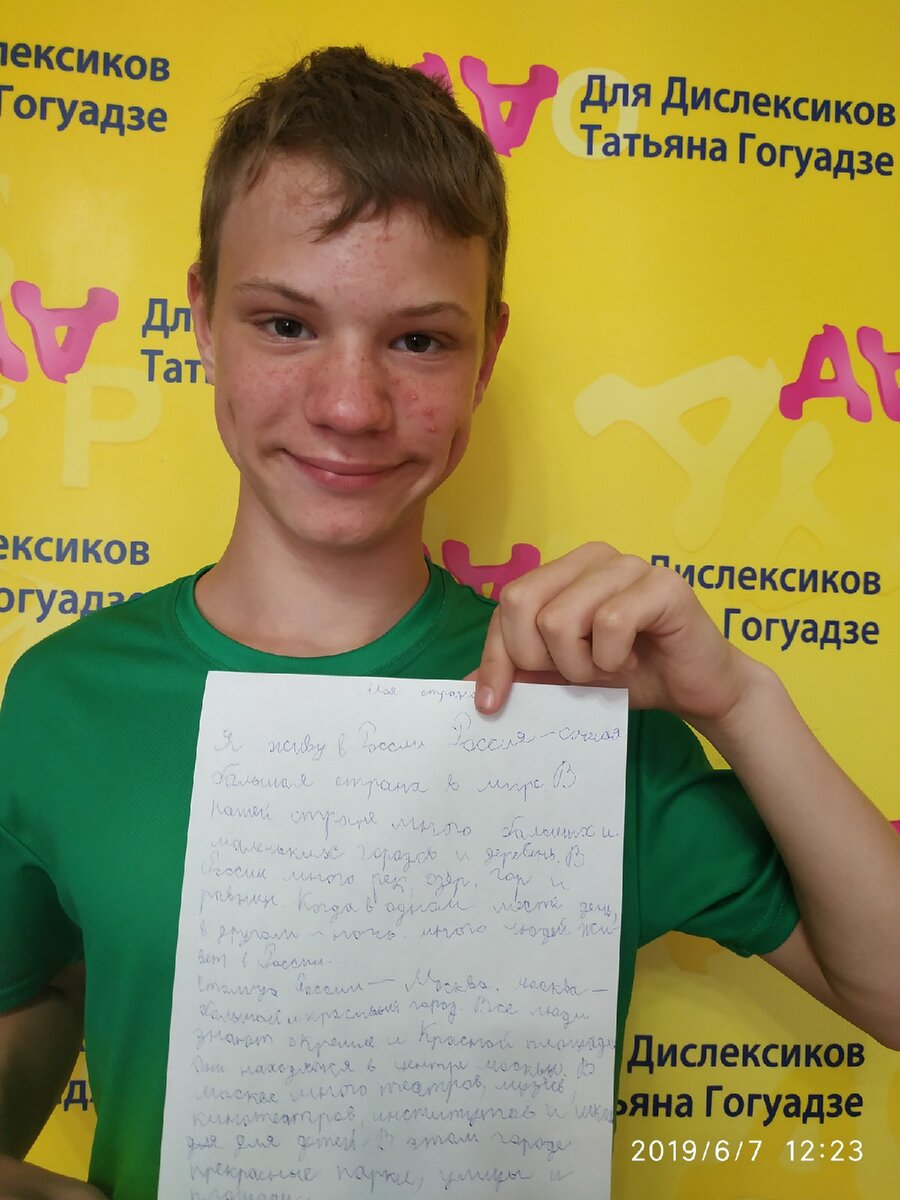 лексиков
Гогуадзе
Для Дислексиков
Татьяна Гогуадзе
Дл
Тат
Р
ексиков
огуадзе
Дислексиков
Гогуадзе
Моя страна
Я живу в России. Россия – самая
большая страна в мире. В
нашей стране много больших и
маленьких городов и деревень. В
России много рек, озёр, гор и
равнин. Когда в одном месте день,
в другом – ночь. много людей жи-
вёт в России.
Столица России – Москва. Москва –
большой и красивый город. Все люди
знают о Кремле и Красной площади
Они находятся в центре москвы. В
москве много театров, музеев,
кинотеатров, институтов и школ
для для детей. В этом городе
прекрасные парки, улицы и
площади
Дислексиков
ьяна Гогуадзе
2019/6/7 12:23